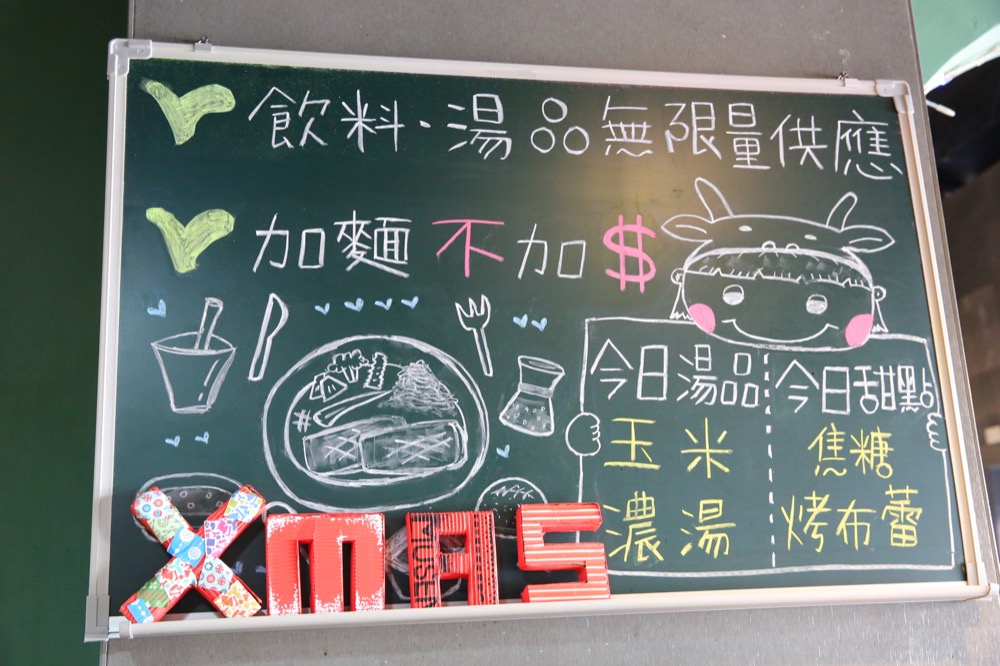 飲料·湯品無限量供應
加麵不加$
今日湯品
玉米
濃湯
今日甜點
焦糖
烤布蕾
XMAS